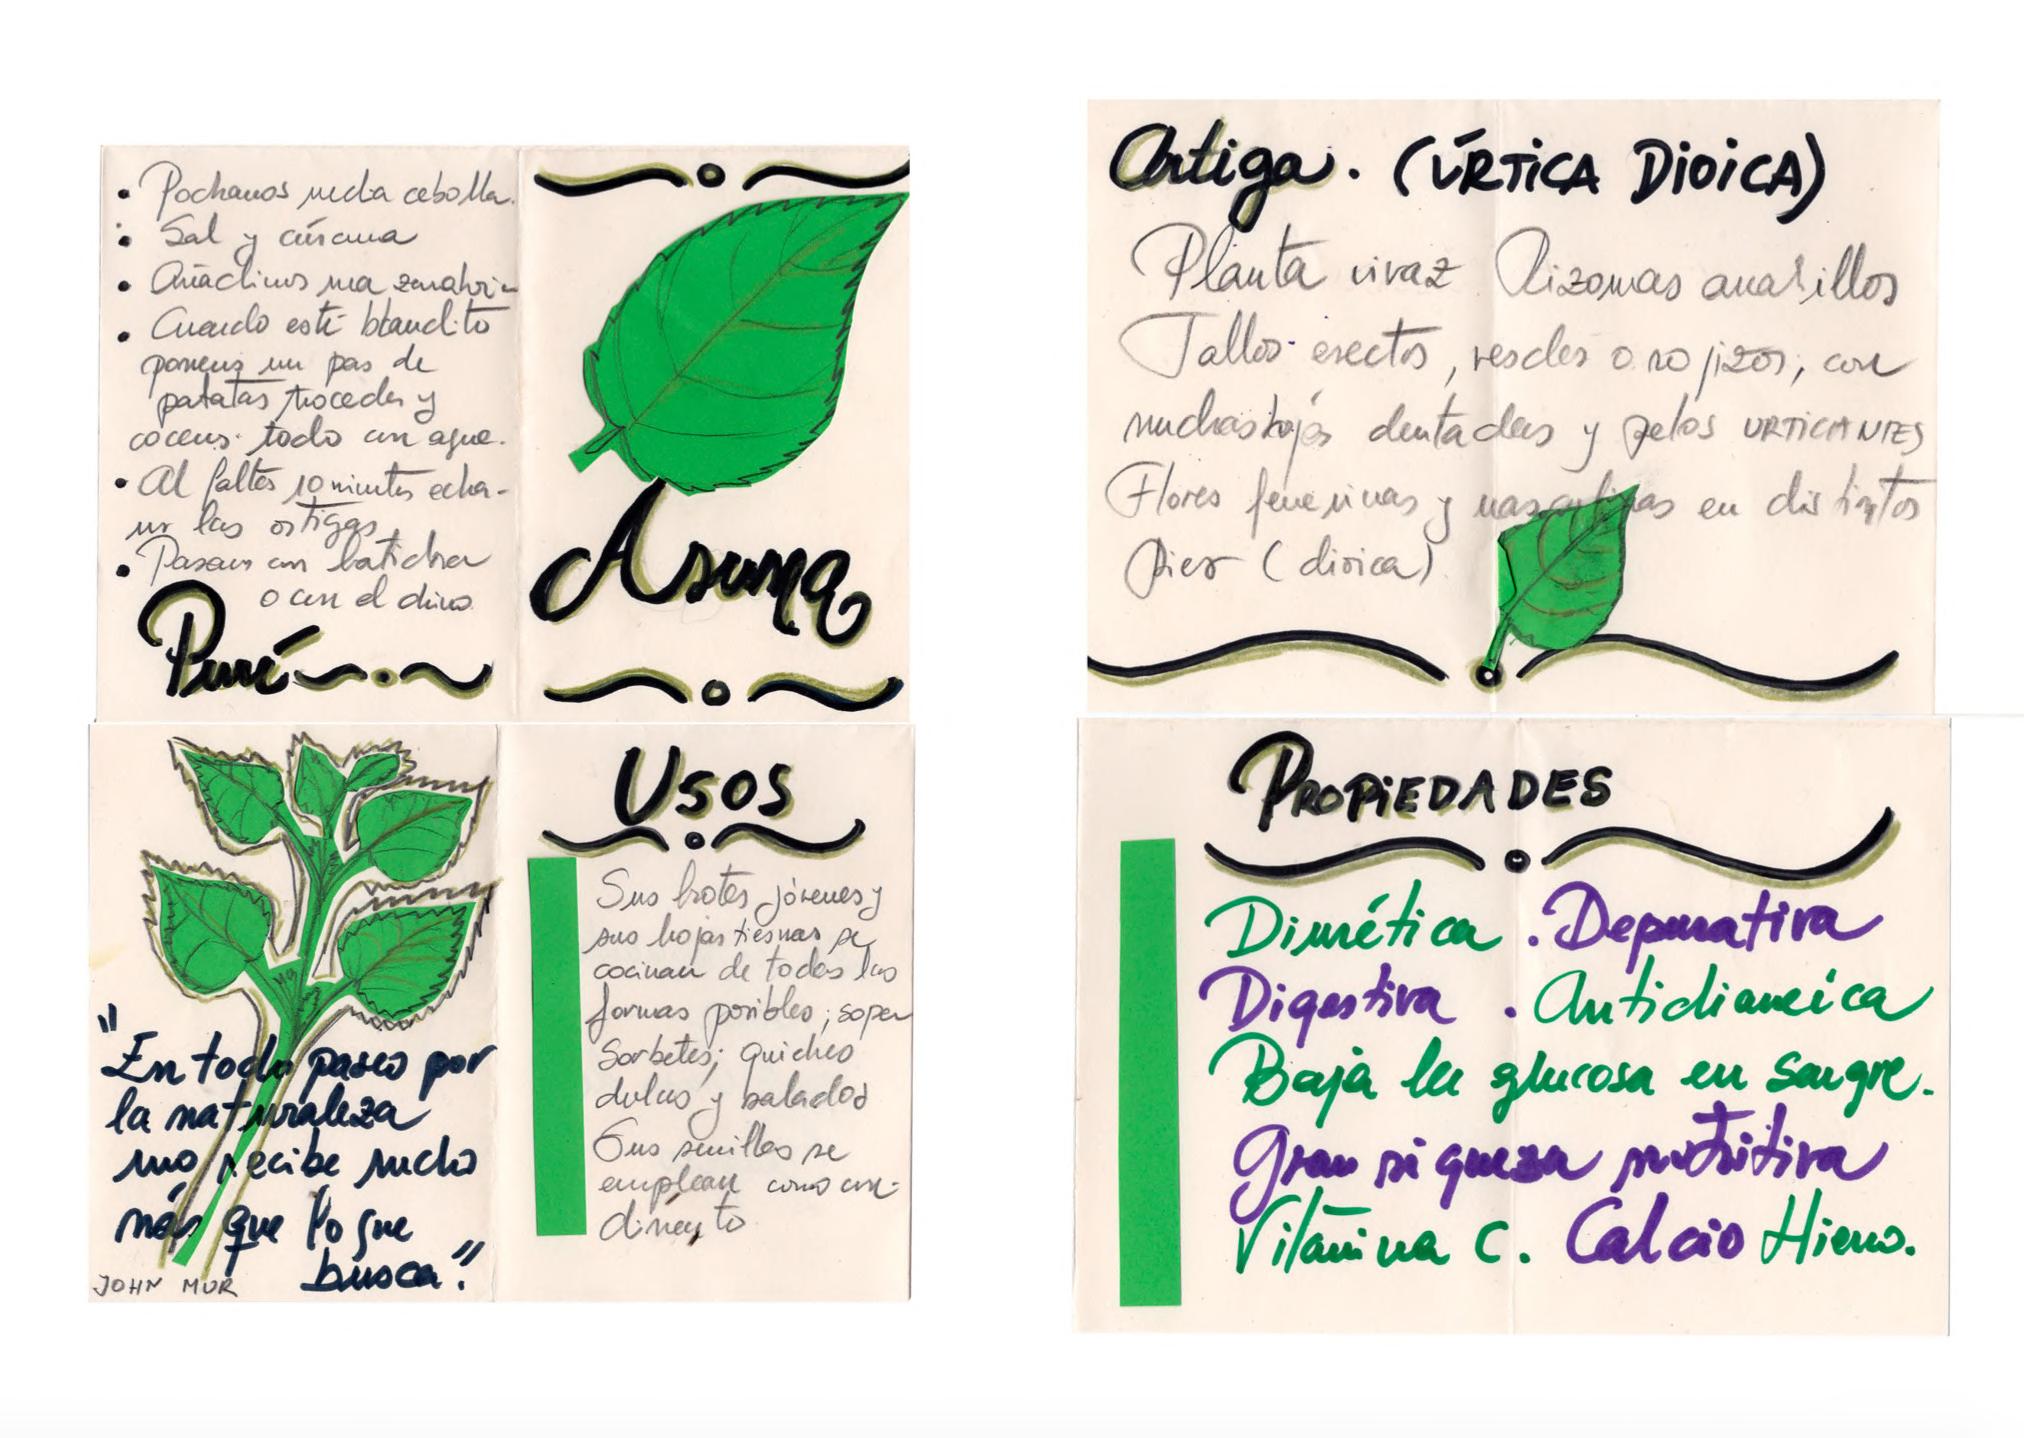 • Pochamos media cebolla.
• Sal y cúrcuma
• Añadimos una zanahoria
• Cuando esté blandito
ponemos un par de
patatas troceadas y
cocemos todo con agua.
• Al faltar 10 minutos echa-
mos las ortigas
• Pasamos con batidora
o con el chino
Puré
Asuma
Ortiga. (ÚRTICA DIOICA)
Planta vivaz Rizomas amarillos
Tallos erectos, verdes o rojizos, con
muchas hojas dentadas y pelos URTICANTES
Flores femeninas y masculinas en distintos
pies (dioica)
"En todo paseo por
la naturaleza
uno recibe mucho
más que lo que
busca."
JOHN MUR
Usos
Sus brotes jóvenes y
sus hojas tiernas se
cocinan de todas las
formas posibles; sopas
sorbetes; quiches
dulces y salados
Sus semillas se
emplean como con-
dimento
PROPIEDADES
Diurética . Depurativa
Digestiva . Antidiarreica
Baja la glucosa en sangre.
Gran riqueza nutritiva
Vitamina C. Calcio Hierro.